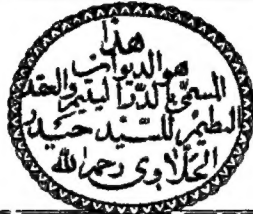 هذا
هو الديوان
المسمى بالدر اليتيم والعقد
النظيم للسيد حيدر
الحلاوى رحمه الله